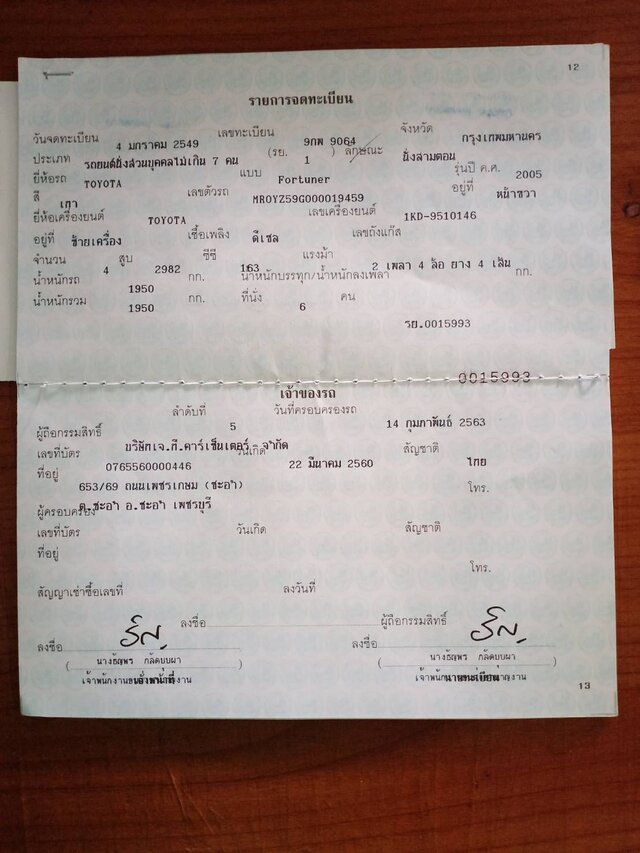 12
รายการจดทะเบียน
วันจดทะเบียน 4 มกราคม 2549 เลขทะเบียน 9กพ 9064 จังหวัด กรุงเทพมหานคร
ประเภท รถยนต์นั่งส่วนบุคคลไม่เกิน 7 คน (รย. 1 ) ลักษณะ นั่งสามตอน
ยี่ห้อรถ TOYOTA แบบ Fortuner รุ่นปี ค.ศ. 2005
สี เทา เลขตัวรถ MROYZ59G000019459 อยู่ที่ หน้าขวา
ยี่ห้อเครื่องยนต์ TOYOTA เลขเครื่องยนต์ 1KD-9510146
อยู่ที่ ซ้ายเครื่อง เชื้อเพลิง ดีเซล เลขถังแก๊ส
จำนวน 4 สูบ 2982 ซีซี 163 แรงม้า 2 เพลา 4 ล้อ ยาง 4 เส้น
น้ำหนักรถ 1950 กก. น้ำหนักบรรทุก/น้ำหนักลงเพลา กก.
น้ำหนักรวม 1950 กก. ที่นั่ง 6 คน
รย.0015993
0015993
เจ้าของรถ
ลำดับที่ 5 วันที่ครอบครองรถ 14 กุมภาพันธ์ 2563
ผู้ถือกรรมสิทธิ์ บริษัทเจ.พี.คาร์เซ็นเตอร์ จำกัด
เลขที่บัตร 0765560000446 วันเกิด 22 มีนาคม 2560 สัญชาติ ไทย
ที่อยู่ 653/69 ถนนเพชรเกษม (ชะอำ) โทร.
ต.ชะอำ อ.ชะอำ เพชรบุรี
ผู้ครอบครอง
เลขที่บัตร วันเกิด สัญชาติ
ที่อยู่
โทร.
สัญญาเช่าซื้อเลขที่ ลงวันที่
ลงชื่อ ผู้ถือกรรมสิทธิ์
ลงชื่อ ลงชื่อ
( นางธัญพร กลัดบุบผา ) ( นางธัญพร กลัดบุบผา )
13